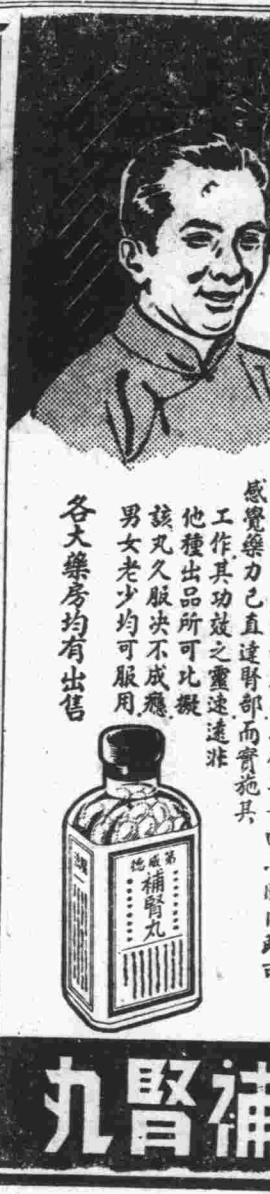 感覺藥力已直達腎部而實施其
工作其功效之靈速遠非
他種出品所可比擬
該丸久服決不成癮
男女老少均可服用
各大藥房均有出售
第威德
補腎丸
補腎丸